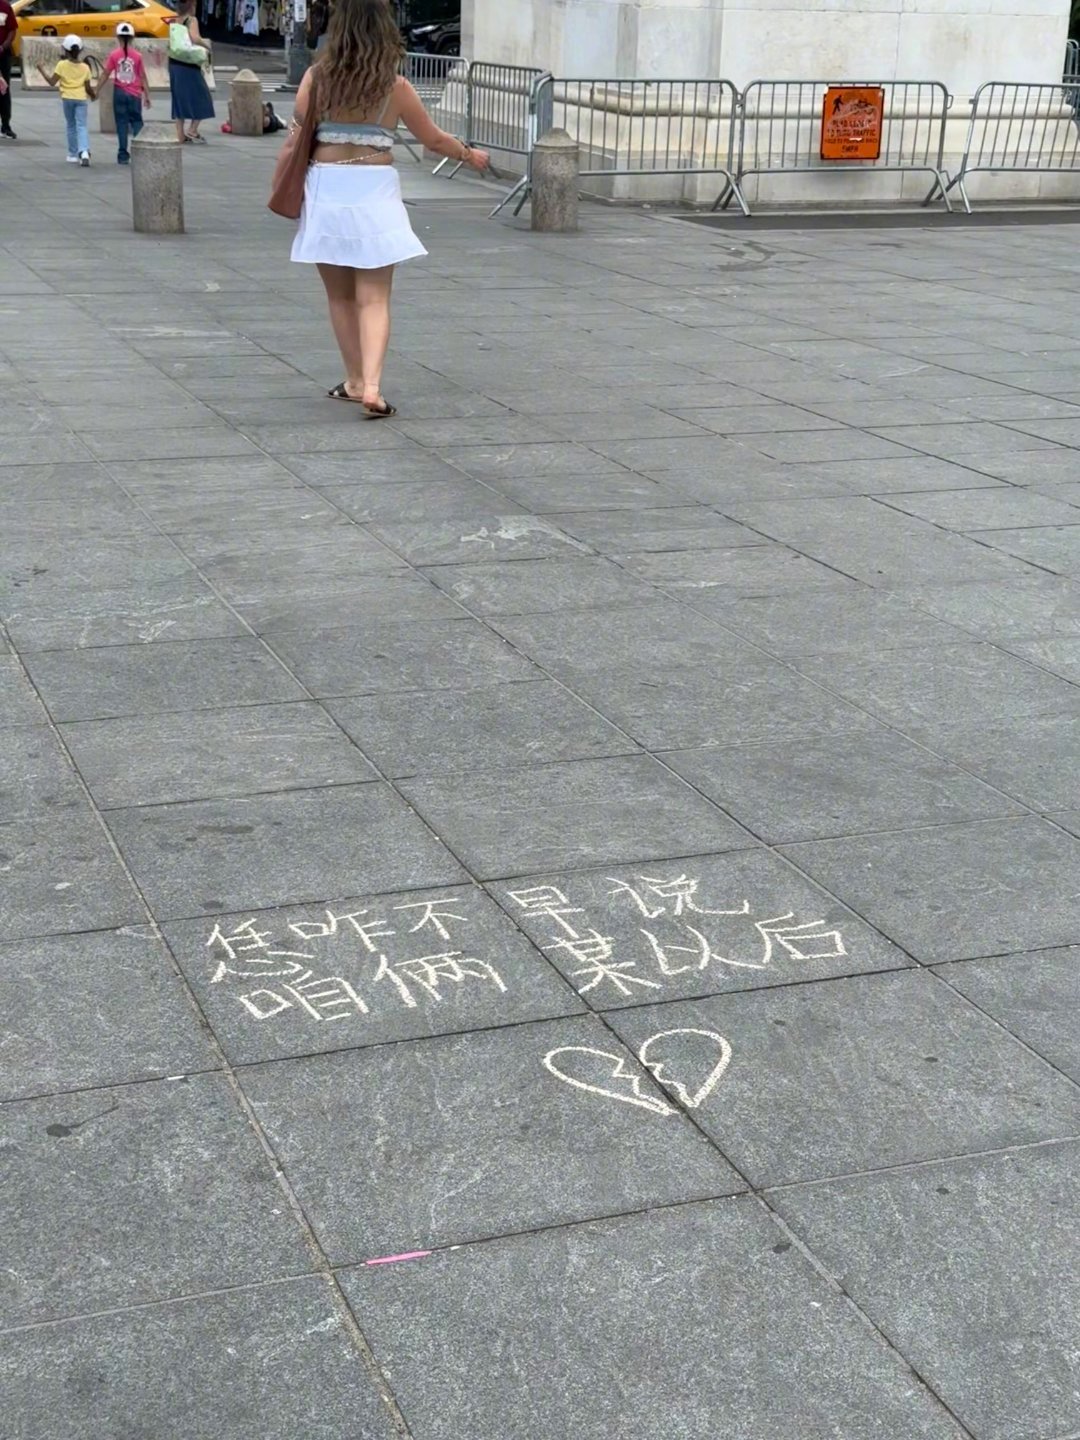 恁咋不早说
咱俩某以后